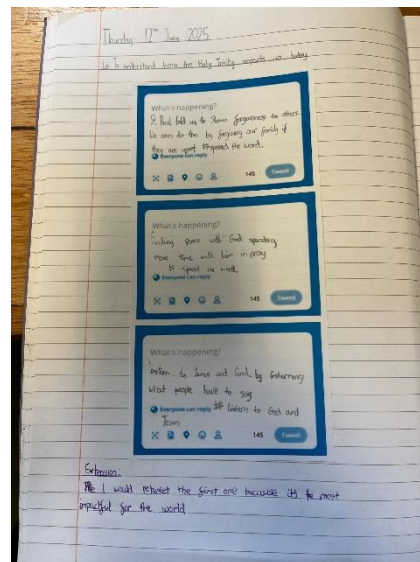 Thursday 12th June 2025
Lo To understand how the Holy Trinity impacts us today
What's happening?
St Paul told us to Show forgiveness to others
We can do this by forgiving our family if
they are upset #spread the word.
Everyone can reply
145 Tweet
What's happening?
peace with God spending
more time with him in pray
# spread the word
Everyone can reply
145 Tweet
What's happening?
listen to Jesus and God by
what people have to say
Everyone can reply # listern to God and
Jesus
145 Tweet
Extension:
I would retweet the first one because its the most
impactful for the world